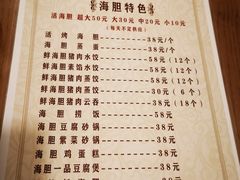 海胆特色
活海胆 超大50元 大30元 中20元 小10元
(每天不定供应)
活烤海胆 38元/个
海胆蒸蛋 38元/个
鲜海胆猪肉水饺 58元 (12个)
鲜海胆素馅水饺 58元 (12个)
鲜海胆猪肉蒸饺 58元 (12个)
鲜海胆猪肉蒸饺 30元 (6个)
鲜海胆猪肉云吞 38元 (18个)
海胆捞饭 58元
海胆豆腐砂锅 38元
海胆紫菜砂锅 38元
海胆鸡蛋糕 38元
海胆一品豆腐煲 38元